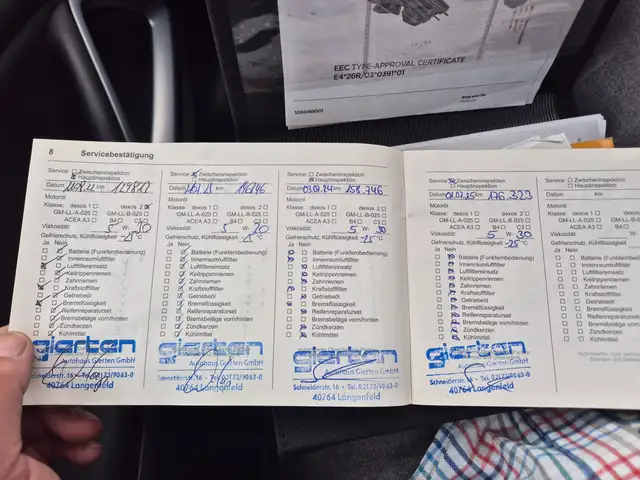 EEC TYPE-APPROVAL CERTIFICATE
E4*26R/03*0391*01
8 Servicebestätigung
Service: Zwischeninspektion
Hauptinspektion
Datum km 129877
Motoröl
Klasse: dexos 1 dexos 2
GM-LL-A-025 GM-LL-B-025
ACEA A3 B4 C3
Viskosität: 5 W- 30
Gefrierschutz, Kühlflüssigkeit -25 °C
Ja Nein
Batterie (Funkfernbedienung)
Innenraumluftfilter
Luftfiltereinsatz
Keilrippenriemen
Zahnriemen
Kraftstofffilter
Getriebeöl
Bremsflüssigkeit
Reifenreparaturset
Bremsbeläge vorn/hinten
Zündkerzen
Kühlmittel
gierten
Autohaus Gierten GmbH
Schneiderstr. 16 - Tel. 02173/9063-0
40764 Langenfeld
Service: Zwischeninspektion
Hauptinspektion
Datum km
Motoröl
Klasse: dexos 1 dexos 2
GM-LL-A-025 GM-LL-B-025
ACEA A3 B4 C3
Viskosität: 5 W- 30
Gefrierschutz, Kühlflüssigkeit -25 °C
Ja Nein
Batterie (Funkfernbedienung)
Innenraumluftfilter
Luftfiltereinsatz
Keilrippenriemen
Zahnriemen
Kraftstofffilter
Getriebeöl
Bremsflüssigkeit
Reifenreparaturset
Bremsbeläge vorn/hinten
Zündkerzen
Kühlmittel
gierten
Autohaus Gierten GmbH
Tel. 02173/9063-0
40764 Langenfeld
Service: Zwischeninspektion
Hauptinspektion
Datum 03.01.24 km 158.746
Motoröl
Klasse: dexos 1 dexos 2
GM-LL-A-025 GM-LL-B-025
ACEA A3 B4 C3
Viskosität: 5 W- 30
Gefrierschutz, Kühlflüssigkeit -25 °C
Ja Nein
Batterie (Funkfernbedienung)
Innenraumluftfilter
Luftfiltereinsatz
Keilrippenriemen
Zahnriemen
Kraftstofffilter
Getriebeöl
Bremsflüssigkeit
Reifenreparaturset
Bremsbeläge vorn/hinten
Zündkerzen
Kühlmittel
gierten
Autohaus Gierten GmbH
Schneiderstr. 16 - Tel. 02173/9063-0
40764 Langenfeld
Service: Zwischeninspektion
Hauptinspektion
Datum 01.02.25 km 176.323
Motoröl
Klasse: dexos 1 dexos 2
GM-LL-A-025 GM-LL-B-025
ACEA A3 B4 C3
Viskosität: 5 W- 30
Gefrierschutz, Kühlflüssigkeit -25 °C
Ja Nein
Batterie (Funkfernbedienung)
Innenraumluftfilter
Luftfiltereinsatz
Keilrippenriemen
Zahnriemen
Kraftstofffilter
Getriebeöl
Bremsflüssigkeit
Reifenreparaturset
Bremsbeläge vorn/hinten
Zündkerzen
Kühlmittel
gierten
Autohaus Gierten GmbH
Schneiderstr. 16 - Tel. 02173/9063-0
40764 Langenfeld
Service:
Datum
Motoröl
Klasse: dexos 1
GM-LL-A-025
ACEA A3
Viskosität:
Gefrierschutz, Kühlflüssigkeit
Ja Nein
Batterie
Innenraumluftfilter
Luftfiltereinsatz
Keilrippenriemen
Zahnriemen
Kraftstofffilter
Getriebeöl
Bremsflüssigkeit
Reifenreparaturset
Bremsbeläge
Zündkerzen
Kühlmittel